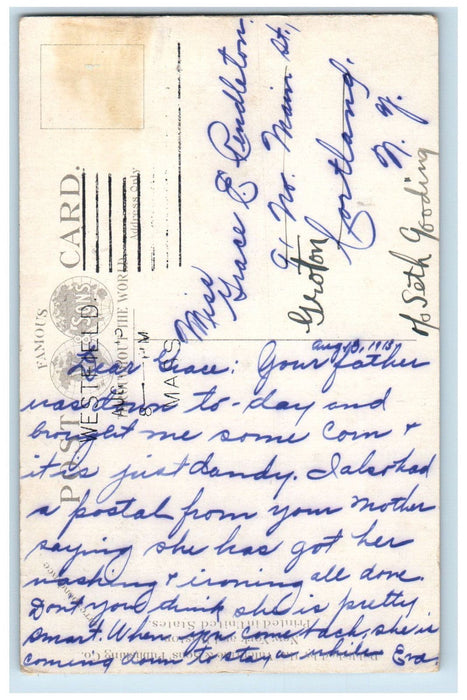 POST CARD.
FAMOUS
THROUGHOUT THE WORLD
Address Only
WESTFIELD
AUG
8 - PM
MASS
Miss
Grace E Pendleton
91 No. Main St,
Cortland.
Groton
N. Y.
c/o Seth Gooding
Aug 3, 1913
Dear Grace: Your father
was down to-day and
brought me some corn +
it is just dandy. I also had
a postal from your Mother
saying she has got her
washing + ironing all done.
Dont you think she is pretty
smart. When you come back, she is
coming down to stay a while Eva
Printed in United States.